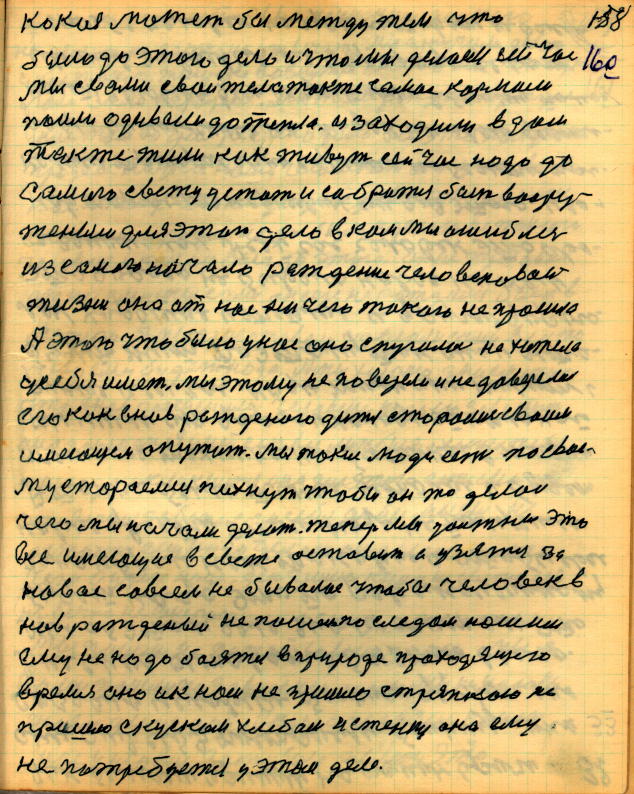 какая может бы между тем что 158
было до этого дело и что мы делаем сейчас 160
мы своми свои тела также самае кормили
поили одивали до тепла. и заходили в дом
также жили как живут сейчас надо до
самаго свету детат и сабратя быт воору-
женым для этаго дело в ком мы ошиблис
из самаго начало раждение человековай
жизни она от нас ни чего такаго не прасила
А этаго что было у нас она спугалас не хатела
у себя имет, мы этому не поверели и не доверели
его как внов рожденаго дитя старалис своим
имеющем опутат. мы такие люди есть по свое-
му стараемся пихнут чтобы он то делал
чего мы начали делат. тепер мы должны это
все имеющие в свете оставит а узятя за
новае савсем не бывалае чтобы человек в
нов рожденый не пошел по следам нашим
ему не надо боятя в природе праходящего
время оно и к нам не пришло с тряпкаю не
пришло с куском хлебам и стенки она ему
не патребуется у этам деле.